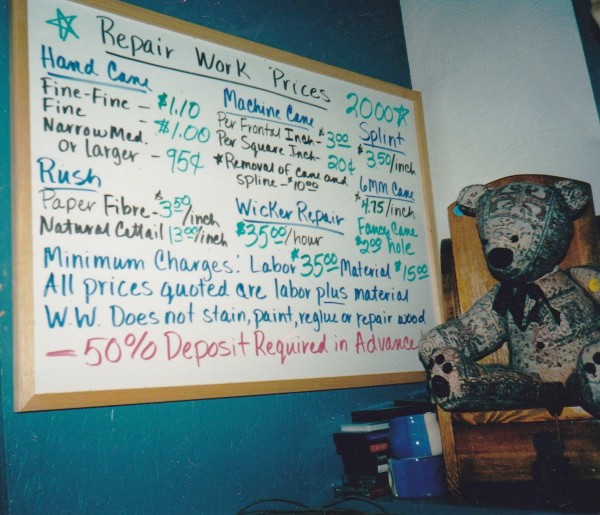 Repair Work Prices
2000
Hand Cane
Fine-Fine - $1.10
Fine - $1.00
Narrow Med. or larger - 95¢
Machine Cane
Per Frontal Inch - $3.00
Per Square Inch - 20¢
*Removal of cane and spline - $10.00
Splint
$3.50/inch
6mm Cane
$4.75/inch
Fancy Cane
$2.00 hole
Rush
Paper Fibre - $3.50/inch
Natural Cattail 13.00/inch
Wicker Repair
$35.00/hour
Minimum Charges: Labor $35.00 Material $15.00
All prices quoted are labor plus material
W.W. Does not stain, paint, reglue or repair wood
- 50% Deposit Required in Advance!